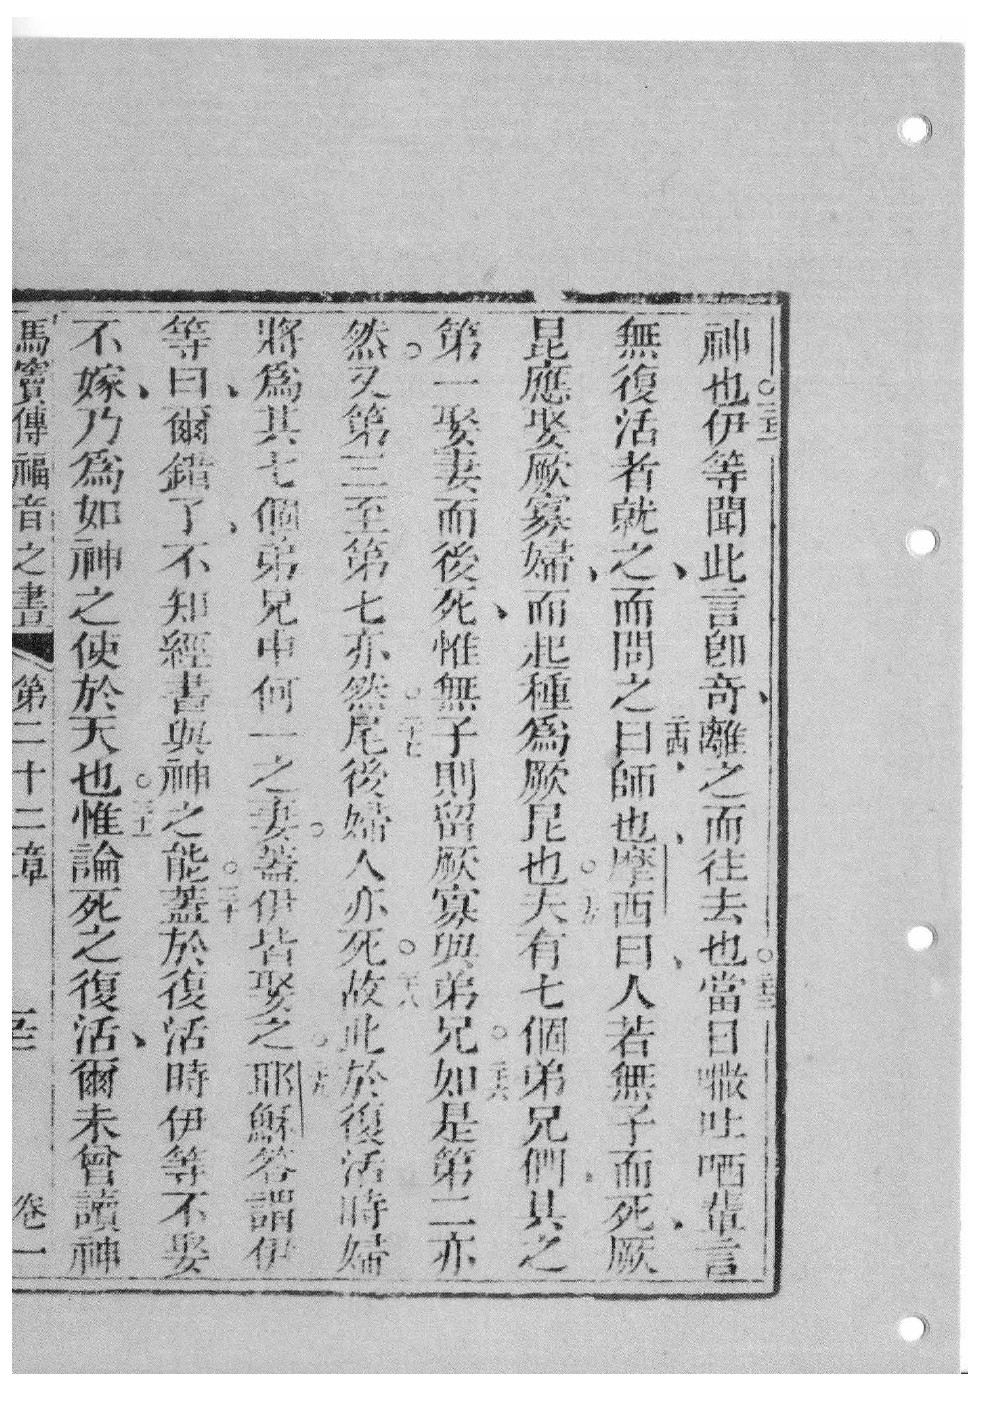 神也○二十二伊等聞此言卽奇離之而往去也○二十三當日𠿪吐哂輩言
無復活者就之而問之○二十四曰師也摩西曰人若無子而死厥
昆應娶厥寡婦而起種爲厥昆也○二十五夫有七個弟兄們其之
第一娶妻而後死惟無子則留厥寡與弟兄○二十六如是第二亦
然○又第三至第七亦然○二十七尾後婦人亦死○二十八故此於復活時婦
將爲其七個弟兄中何一之妻○蓋伊皆娶之○二十九耶穌答謂伊
等曰爾錯了不知經書與神之能○三十蓋於復活時伊等不娶
不嫁乃爲如神之使於天也○三十一惟論死之復活爾未曾讀神
馬竇傳福音之書 第二十二章 卷一